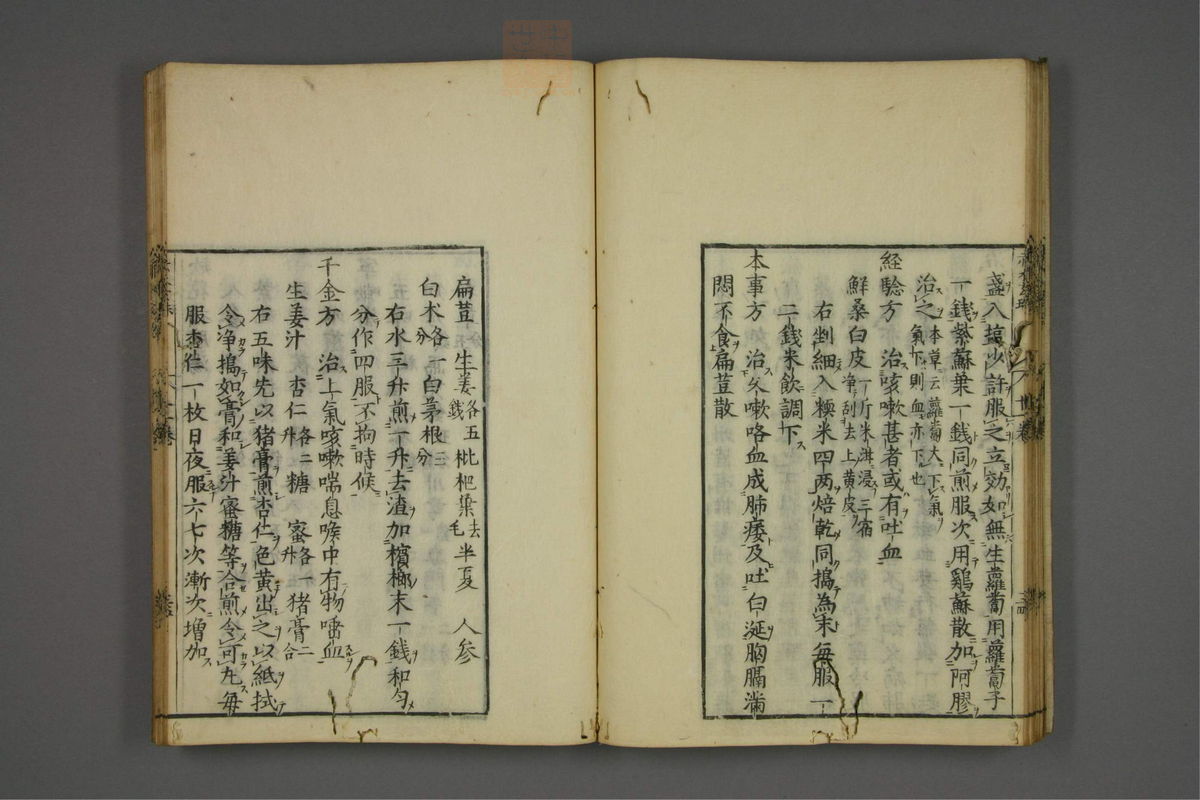 盞入塩少許服之立効如無生蘿蔔用蘿蔔子
一銭紫蘇葉一銭同煎服次用鶏蘇散加阿膠
治之本草云蘿蔔大下氣氣下則血亦下也
経驗方 治咳嗽甚者或有吐血
鮮桑白皮一斤米泔浸三宿浄刮去上黄皮
右剉細入糯米四两焙乾同搗為末毎服一
二銭米飲調下
本事方 治久嗽咯血成肺痿及吐白涎胸膈満
悶不食扁荳散
扁荳 生姜各五銭 枇杷葉去毛 半夏 人参
白朮各一分 白茅根三分
右水三升煎一升去渣加檳榔末一銭和匀
分作四服不拘時候
千金方 治上氣咳嗽喘息喉中有物唾血
生姜汁 杏仁各二升 糖 蜜各一升 猪膏二合
右五味先以猪膏煎杏仁色黄出之以紙拭
令浄搗如膏和姜汁蜜糖等合煎令可丸毎
服杏仁一枚日夜服六七次漸次増加